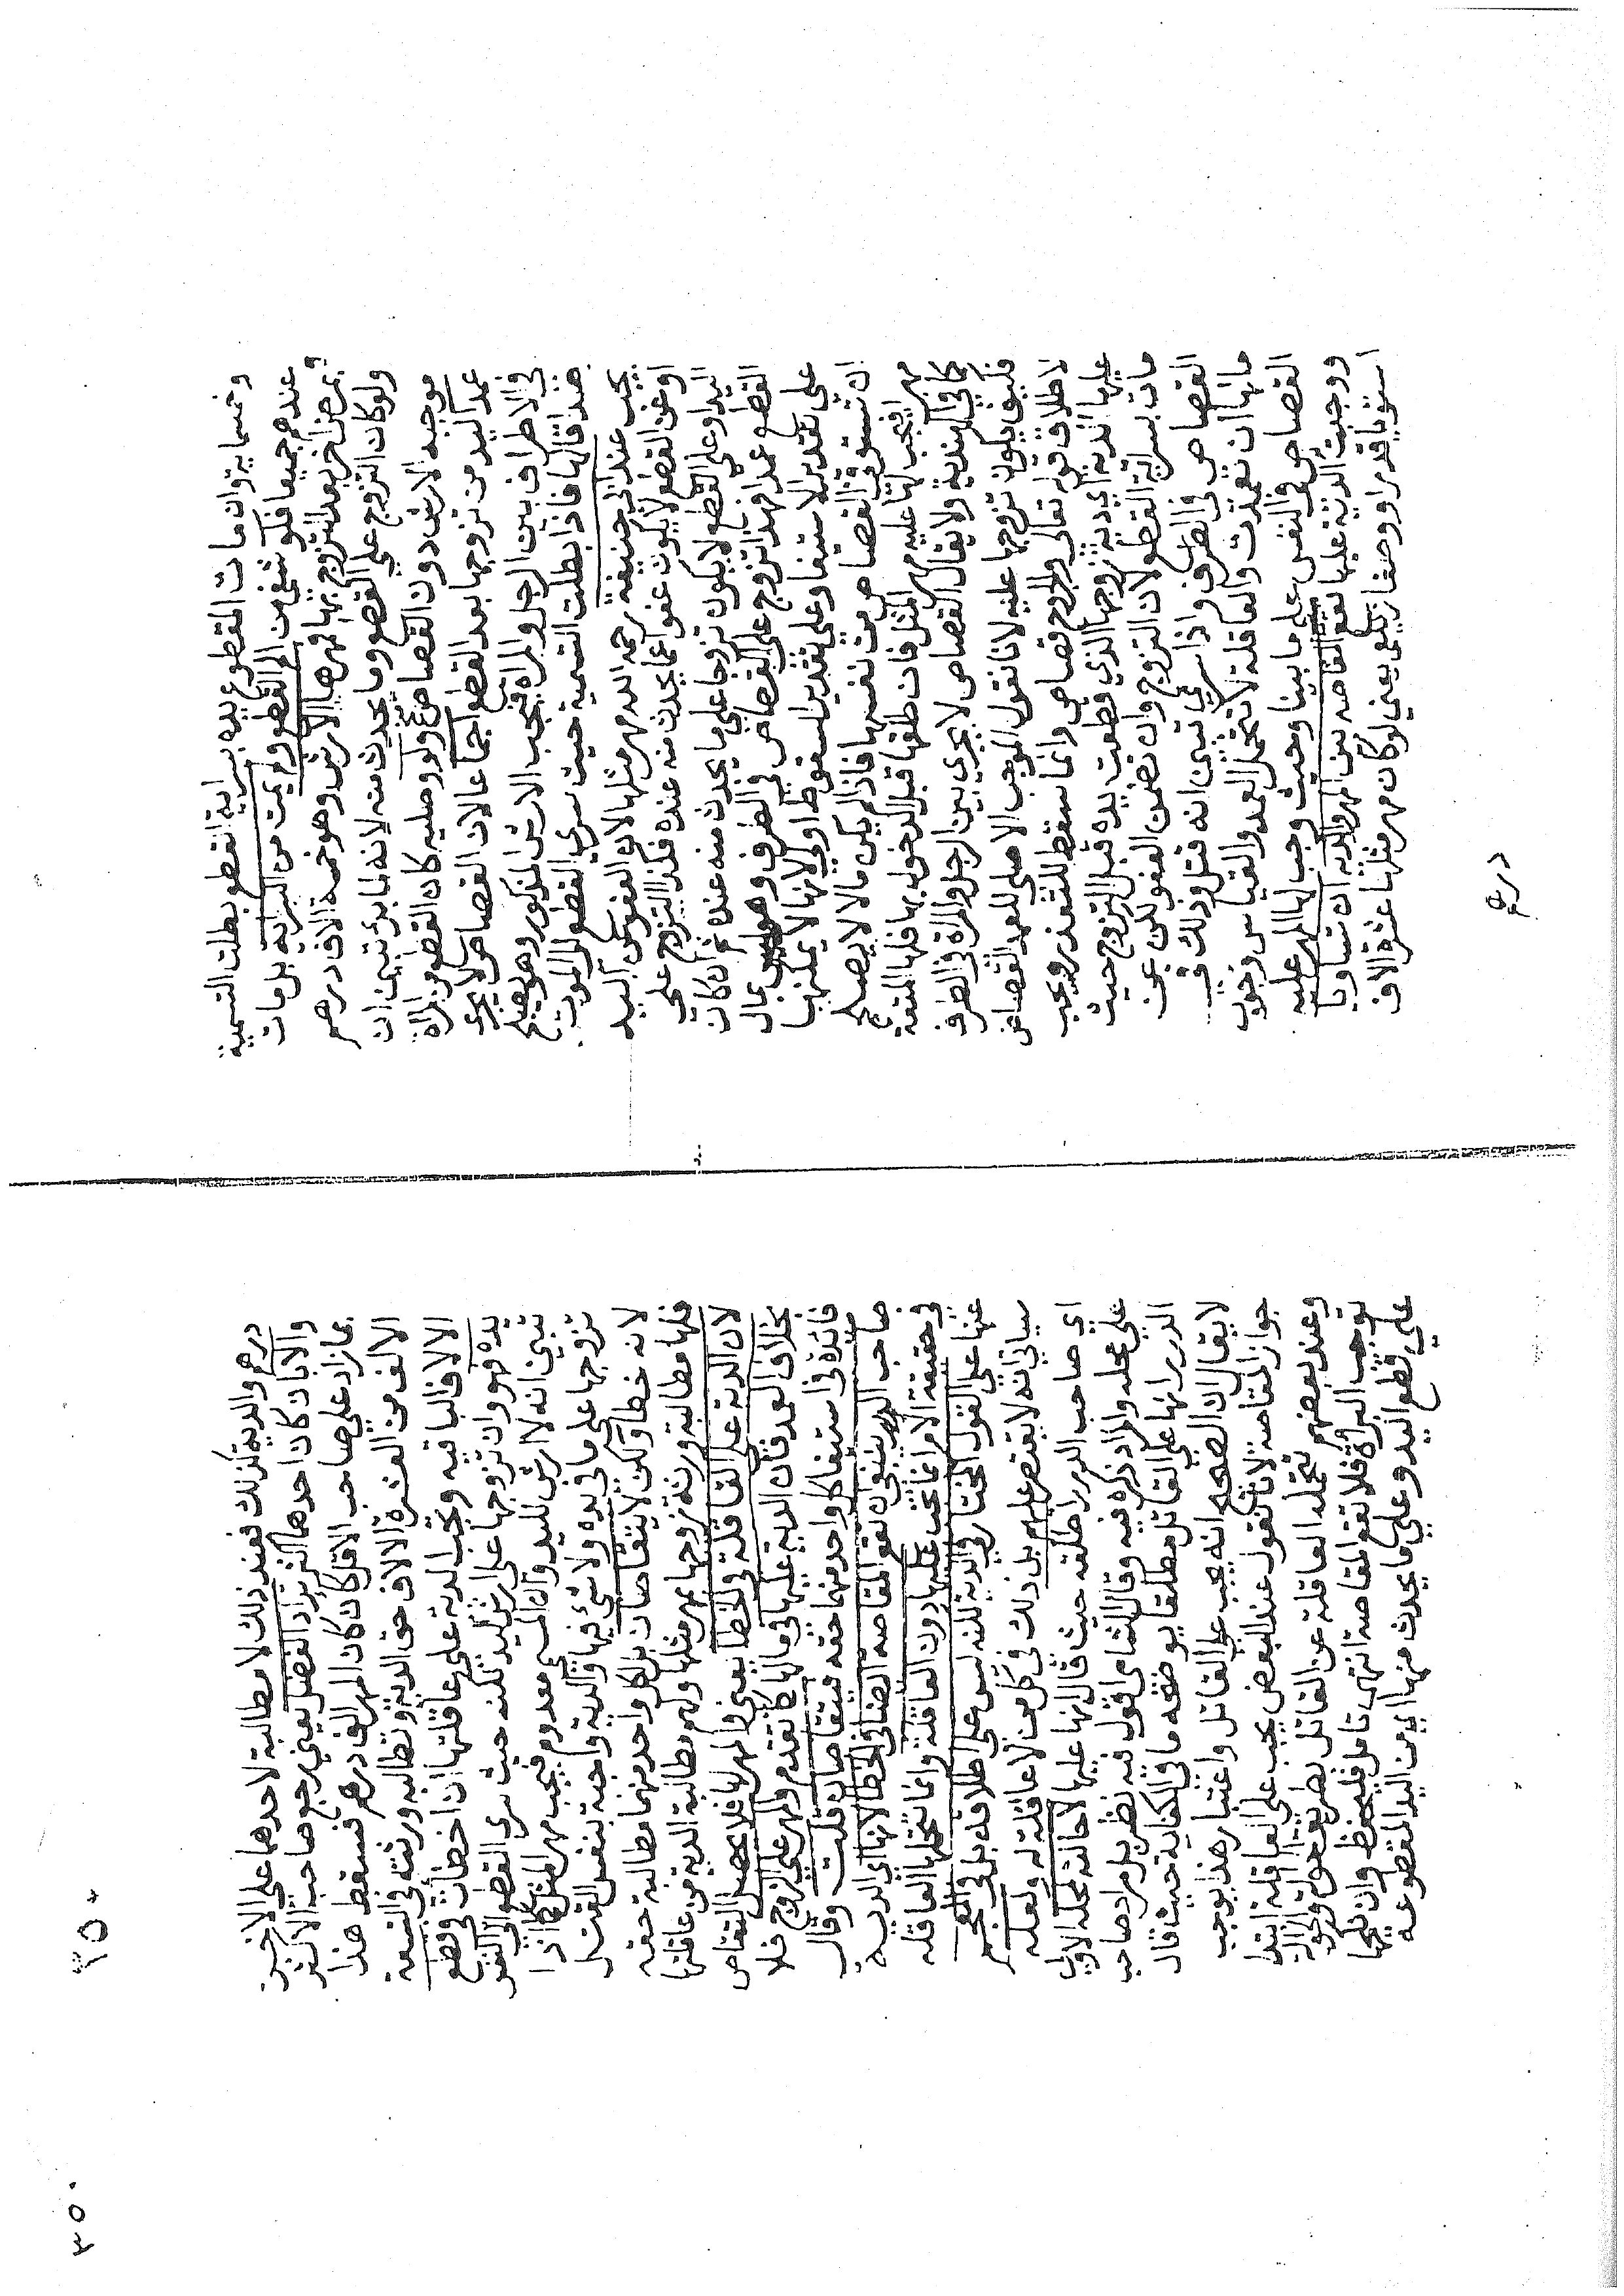 وخمسماية وان مات المقطوع يده بسراية القطع بطلت التسمية
عندهم جميعا فلو شفي من الم القطع ولم يمت من السراية بل مات
بمرض اخر بعد التزوج بها فمهرها الارش وهو خمسة الاف درهم
ولو كان التزوج علي القطع وما يحدث منه لانه لما برئ تبين ان
موجبه الارش دون القصاص ولو وصليه كان القطع من المراة
عمد اليد من تزوجها بعد القطع اجماعا لان القصاص لا يجري
في الاطراف بين الرجل والمراة فيجب الارش المذكور وهو يصلح
صداقا لها فاذا بطلت التسمية حيث سري القطع الي الموت
يجب عند ابي حنيفة رحمه الله مهر مثلها لان العفو عن اليد
او عن القطع لا يكون عفوا عما يحدث منه عنده فكذا التزوج علي
اليد او علي القطع لا يكون تزوجا علي ما يحدث منه عنده ثم ان كان
القطع عمدا فهذا تزوج علي القصاص في الطرف وهو ليس بمال
علي تقدير الاستيفا وعلي تقدير السقوط اولي لانها لا يمكنها
ان تستوفي القصاص من نفسها فاذا لم يكن مالا لا يصلح
مهرا فيجب لها عليه مهر المثل فان طلقها قبل الدخول بها فلها المتعة
كما في الهندية ولا يقال القصاص لا يجري بين الرجل والمراة في الطرف
فكيف يكون تزوجها عليه لانا نقول الموجب الاصلي للعمد القصاص
لاطلاق قوله تعالي والجروح قصاص وانما سقط للتعذر ويجب
عليها الدية اي دية زوجها الذي قطعت يده قبل التزوج حيث
مات بسراية القطع لان التزوج وان تضمن العفو لكن عن
القصاص في الطرف واذا سري تبين انه قتل وذلك في
مالها ان تعمدت والعاقلة لا تتحمل العمد والقياس وجوب
القصاص في النفس علي ما بينا وحيث وجب لها المهر عليه
ووجبت الدية عليها تقع المقاصه بين المهر والديه ان تساويا
استويا قدرا ووصفا زيلعي يعني لو كان مهر مثلها عشرة الاف
درهم
درهم والدية كذلك فعند ذلك لا مطالبة لاحدهما علي الاخر
والا بان كان احدهما اكثر تراد الفضل يعني رجع صاحب الاكثر
بما زاد علي صاحب الاقل كان كان المهر الف درهم فسقط هذا
الالف من العشرة الالاف حق الدية وتطالبه ورثته في التسعة
الالاف الباقيه وتجب الدية علي عاقلتها ان اخطأت في قطع
يده فهو وان تزوجها علي ارش اليد لكنه حيث سري القطع الي النفس
تبين انه لا ارش لليد وان المسمي معدوم فيجب مهر المثل كما اذا
تزوجها علي ما في يده ولا شئ فيها والدية واجبة بنفس القتل
لانه خطا ولكن لا يتقاصان بل لكل واحد منهما مطالبة حقه
فلها مطالبة ورثة زوجها بمهر مثلها ولهم مطالبة الدية من عاقلتها
لان الدية علي العاقلة في الخطا يعني والمهر لها فلا يحصل التقاص
بخلاف العمد فان الدية عليها في مالها كما تقدم والمهر علي الزوج فلا
فائدة في استيفا كل واحد منهما حقه فيتقاصان قلت وقال
صاحب الدرر ينبغي ان تقع المقاصه ايضا في الخطا لانها اي الديه
في حقيقة الامر انما تجب عليها دون العاقلة وانما تتحملها العاقله
عنها علي القول المختار في الدية لكنه ليس علي اطلاقه بل في العجم
سياتي انه لا يقتصر عليهم بل ذلك في كل من لا عاقلة له ولعله
اي صاحب الدرر اطلقه حيث قال انها عليها لاحالته لمحله الاول
علي محله والمراد ذكره فيه وقال الشامي اقول فيه نظر بل مراد صاحب
الدرر انها علي القاتل مطلقا يوضحه ما في الكفاية حيث قال
لا يقال ان الصحيح انه يجب علي القاتل واعتبار هذا يوجب
جواز المقاصة لانا نقول عند البعض يجب علي العاقلة ابتدا
وعند بعضهم تتحمله العاقلة عن القاتل بطريق الحوالة والحوالة
توجب البراة فلا تقع المقاصة انتهي تامل فليحفظ وان نكحها
علي قطع اليد وعلي ما يحدث منها اي من اليد المقطوعه
٢٥٠
٣٥٠